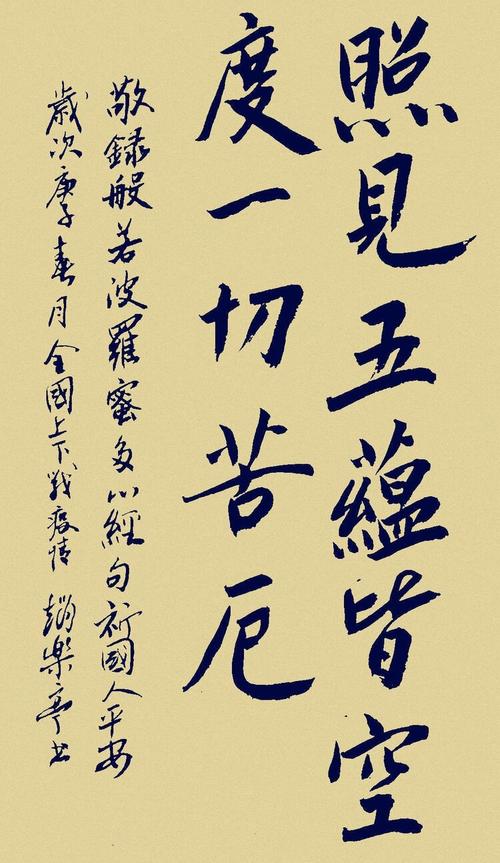 照見五蘊皆空
度一切苦厄
敬錄般若波羅蜜多心經句祈國人平安
歲次庚子春月全國上下戰疫情 趙樂亭书